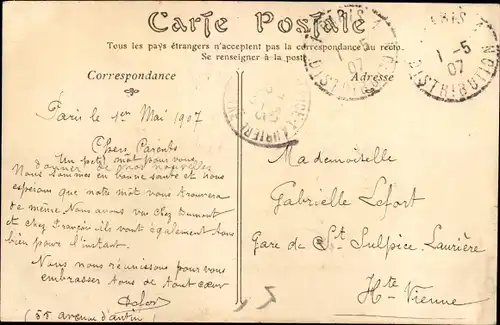 Carte Postale
Tous les pays étrangers n'acceptent pas la correspondance au recto.
Se renseigner à la poste
Correspondance
Adresse
Paris le 1er Mai 1907
Chers Parents
Un petit mot pour vous
donner de nos nouvelles
Nous sommes en bonne santé et nous
esperons que notre mot vous trouvera
de même. Nous avons vu chez Dumont
et chez François ils vont également tous
bien pour l'instant.
Nous nous réunissons pour vous
embrasser tous de tout cœur
(55 avenue d'antin)
Mademoiselle
Gabrielle Lefort
Gare de St Sulpice Laurière
Hte Vienne
PARIS
1 - 5
07
DISTRIBUTION
PARIS
1 - 5
07
DISTRIBUTION
LAURIERE